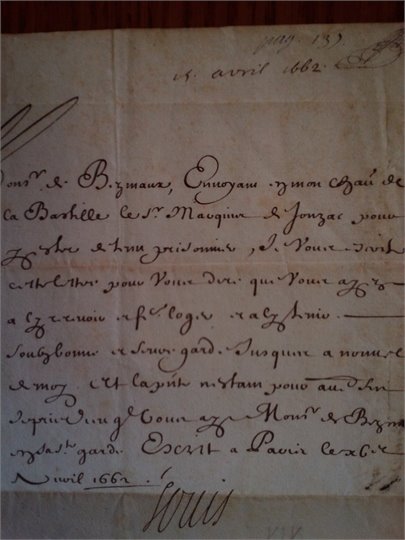 pag. 139
15. avril 1662.
Monsr. de Bezmaux, Ennoyant en mon chau. de
la Bastille le Sr. Marquis de Jonzac pour
y estre detenu prisonnier, Je vous escrit
cette lettre pour vous dire que vous ayez
a ly recevoir et fe. loger et a ly tenir
soubz bonne et seure garde Jusques a nouvel
de moy. Et la pnte nestant pour au. fin
Je prie Dieu ql vous aye Monsr. de Bezm
en sa ste garde. Escrit a Paris le xbe
Avril 1662.
Louis
XIV